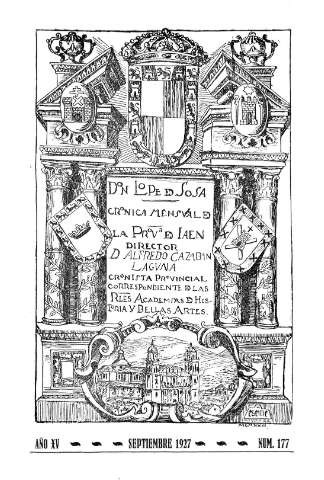 DON LOPE D SOSA
CRÓNICA MENSUAL D
LA PROVA D JAEN
DIRECTOR
D ALFREDO CAZABAN
LAGUNA
CRONISTA PROVINCIAL
CORRESPONDIENTE D LAS
RLES ACADEMIAS D HIS
TORIA Y BELLAS ARTES.
AÑO XV SEPTIEMBRE 1927 NUM. 177